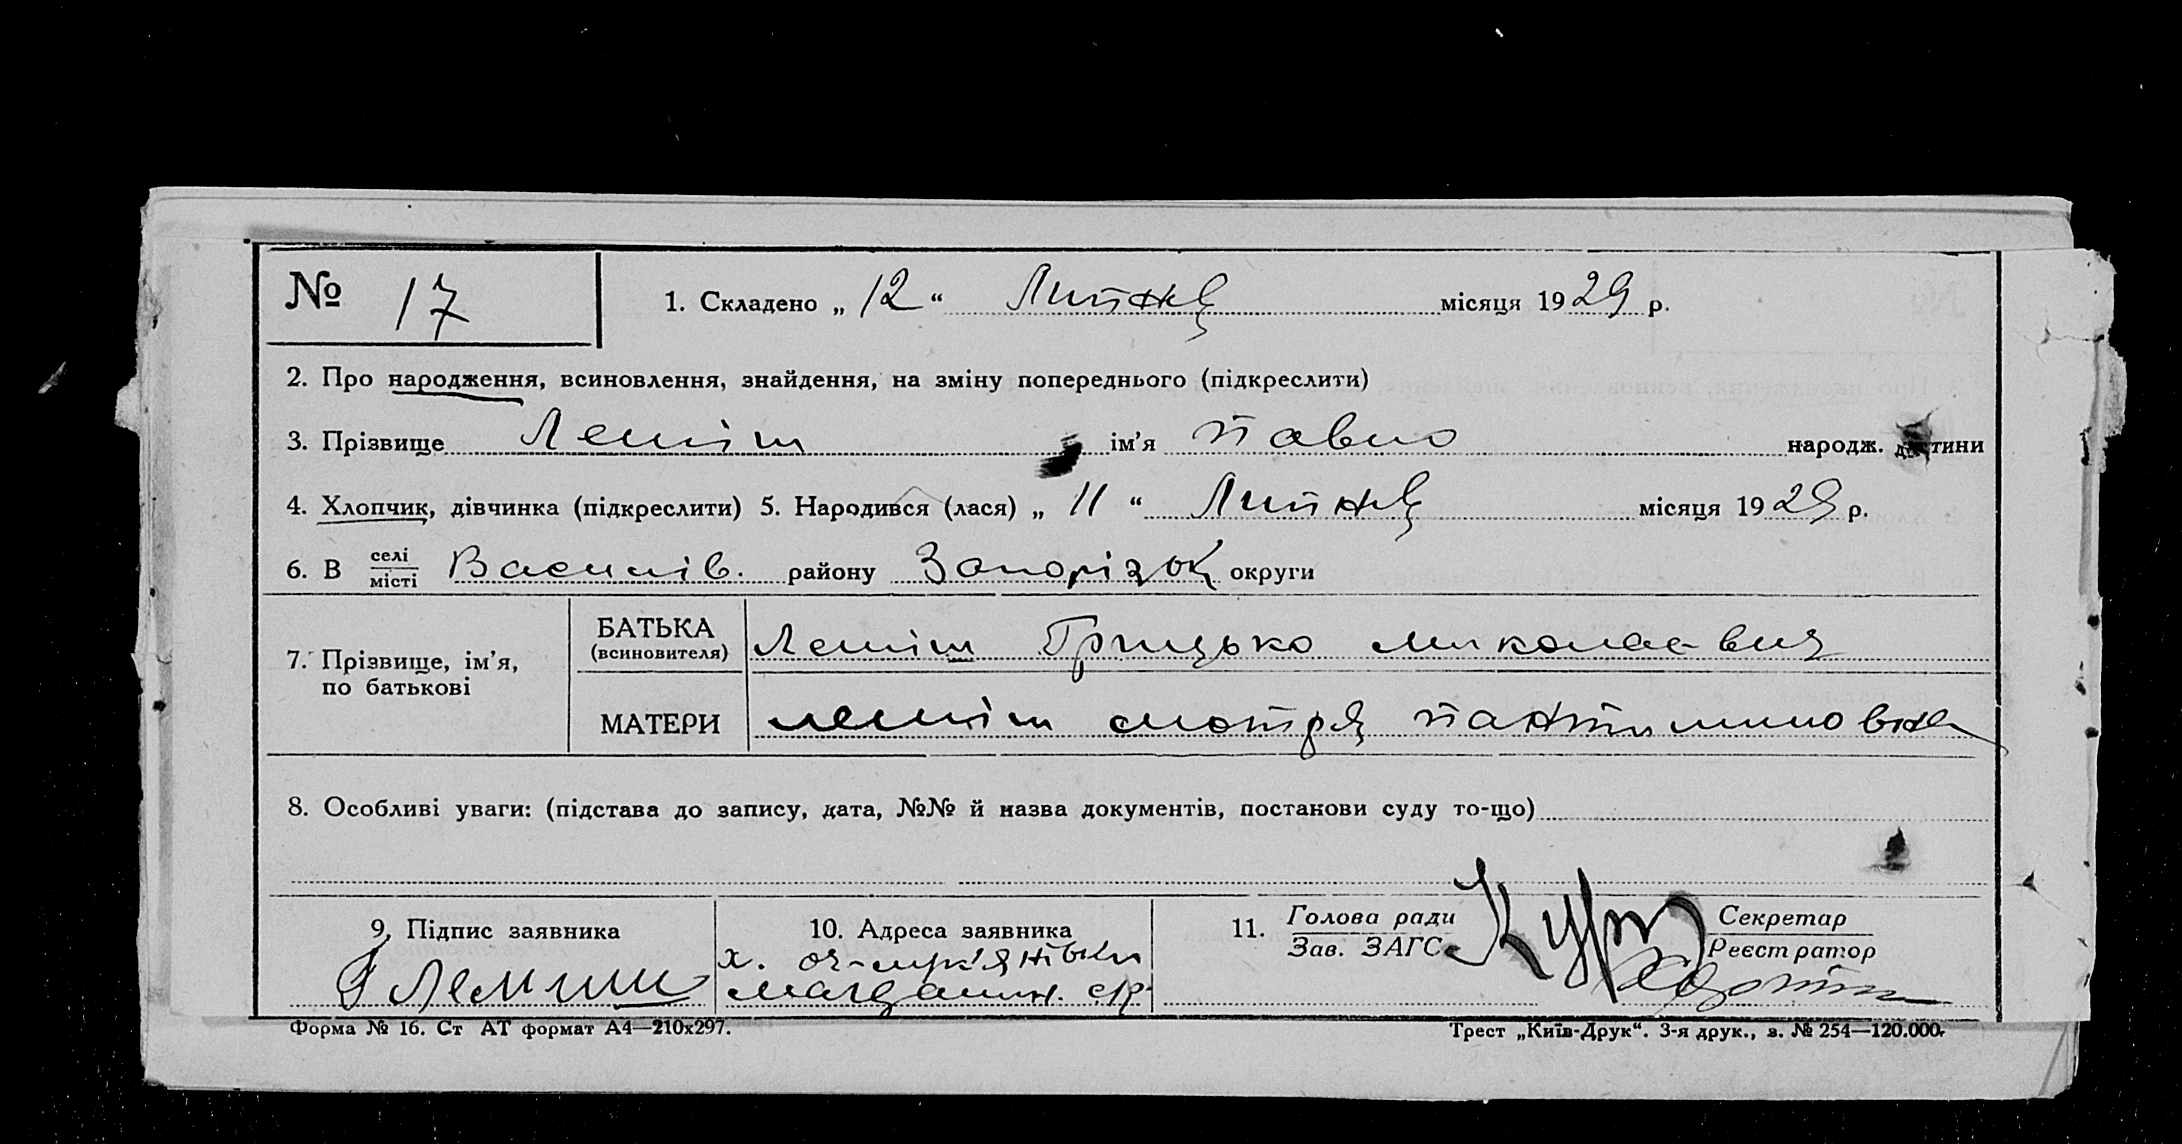 № 17
1. Складено „ 12 “ Липня місяця 1929 р.
2. Про народження, всиновлення, знайдення, на зміну попереднього (підкреслити)
3. Прізвище Леміш ім’я Павло народж. дитини
4. Хлопчик, дівчинка (підкреслити) 5. Народився (лася) „ 11 “ Липня місяця 1929 р.
6. В селі
місті Василів. району Запорізьк округи
7. Прізвище, ім’я,
по батькові
БАТЬКА
(всиновителя)
Леміш Грицько миколаєвич
МАТЕРИ
леміш мотря
8. Особливі уваги: (підстава до запису, дата, №№ й назва документів, постанови суду то-що)
9. Підпис заявника
Г Леміш
10. Адреса заявника
х.
11. Голова ради
Зав. ЗАГС
Секретар
Реєстратор
Форма № 16. Ст АТ формат А4—210х297.
Трест „Київ-Друк“. 3-я друк., з. № 254—120.000.